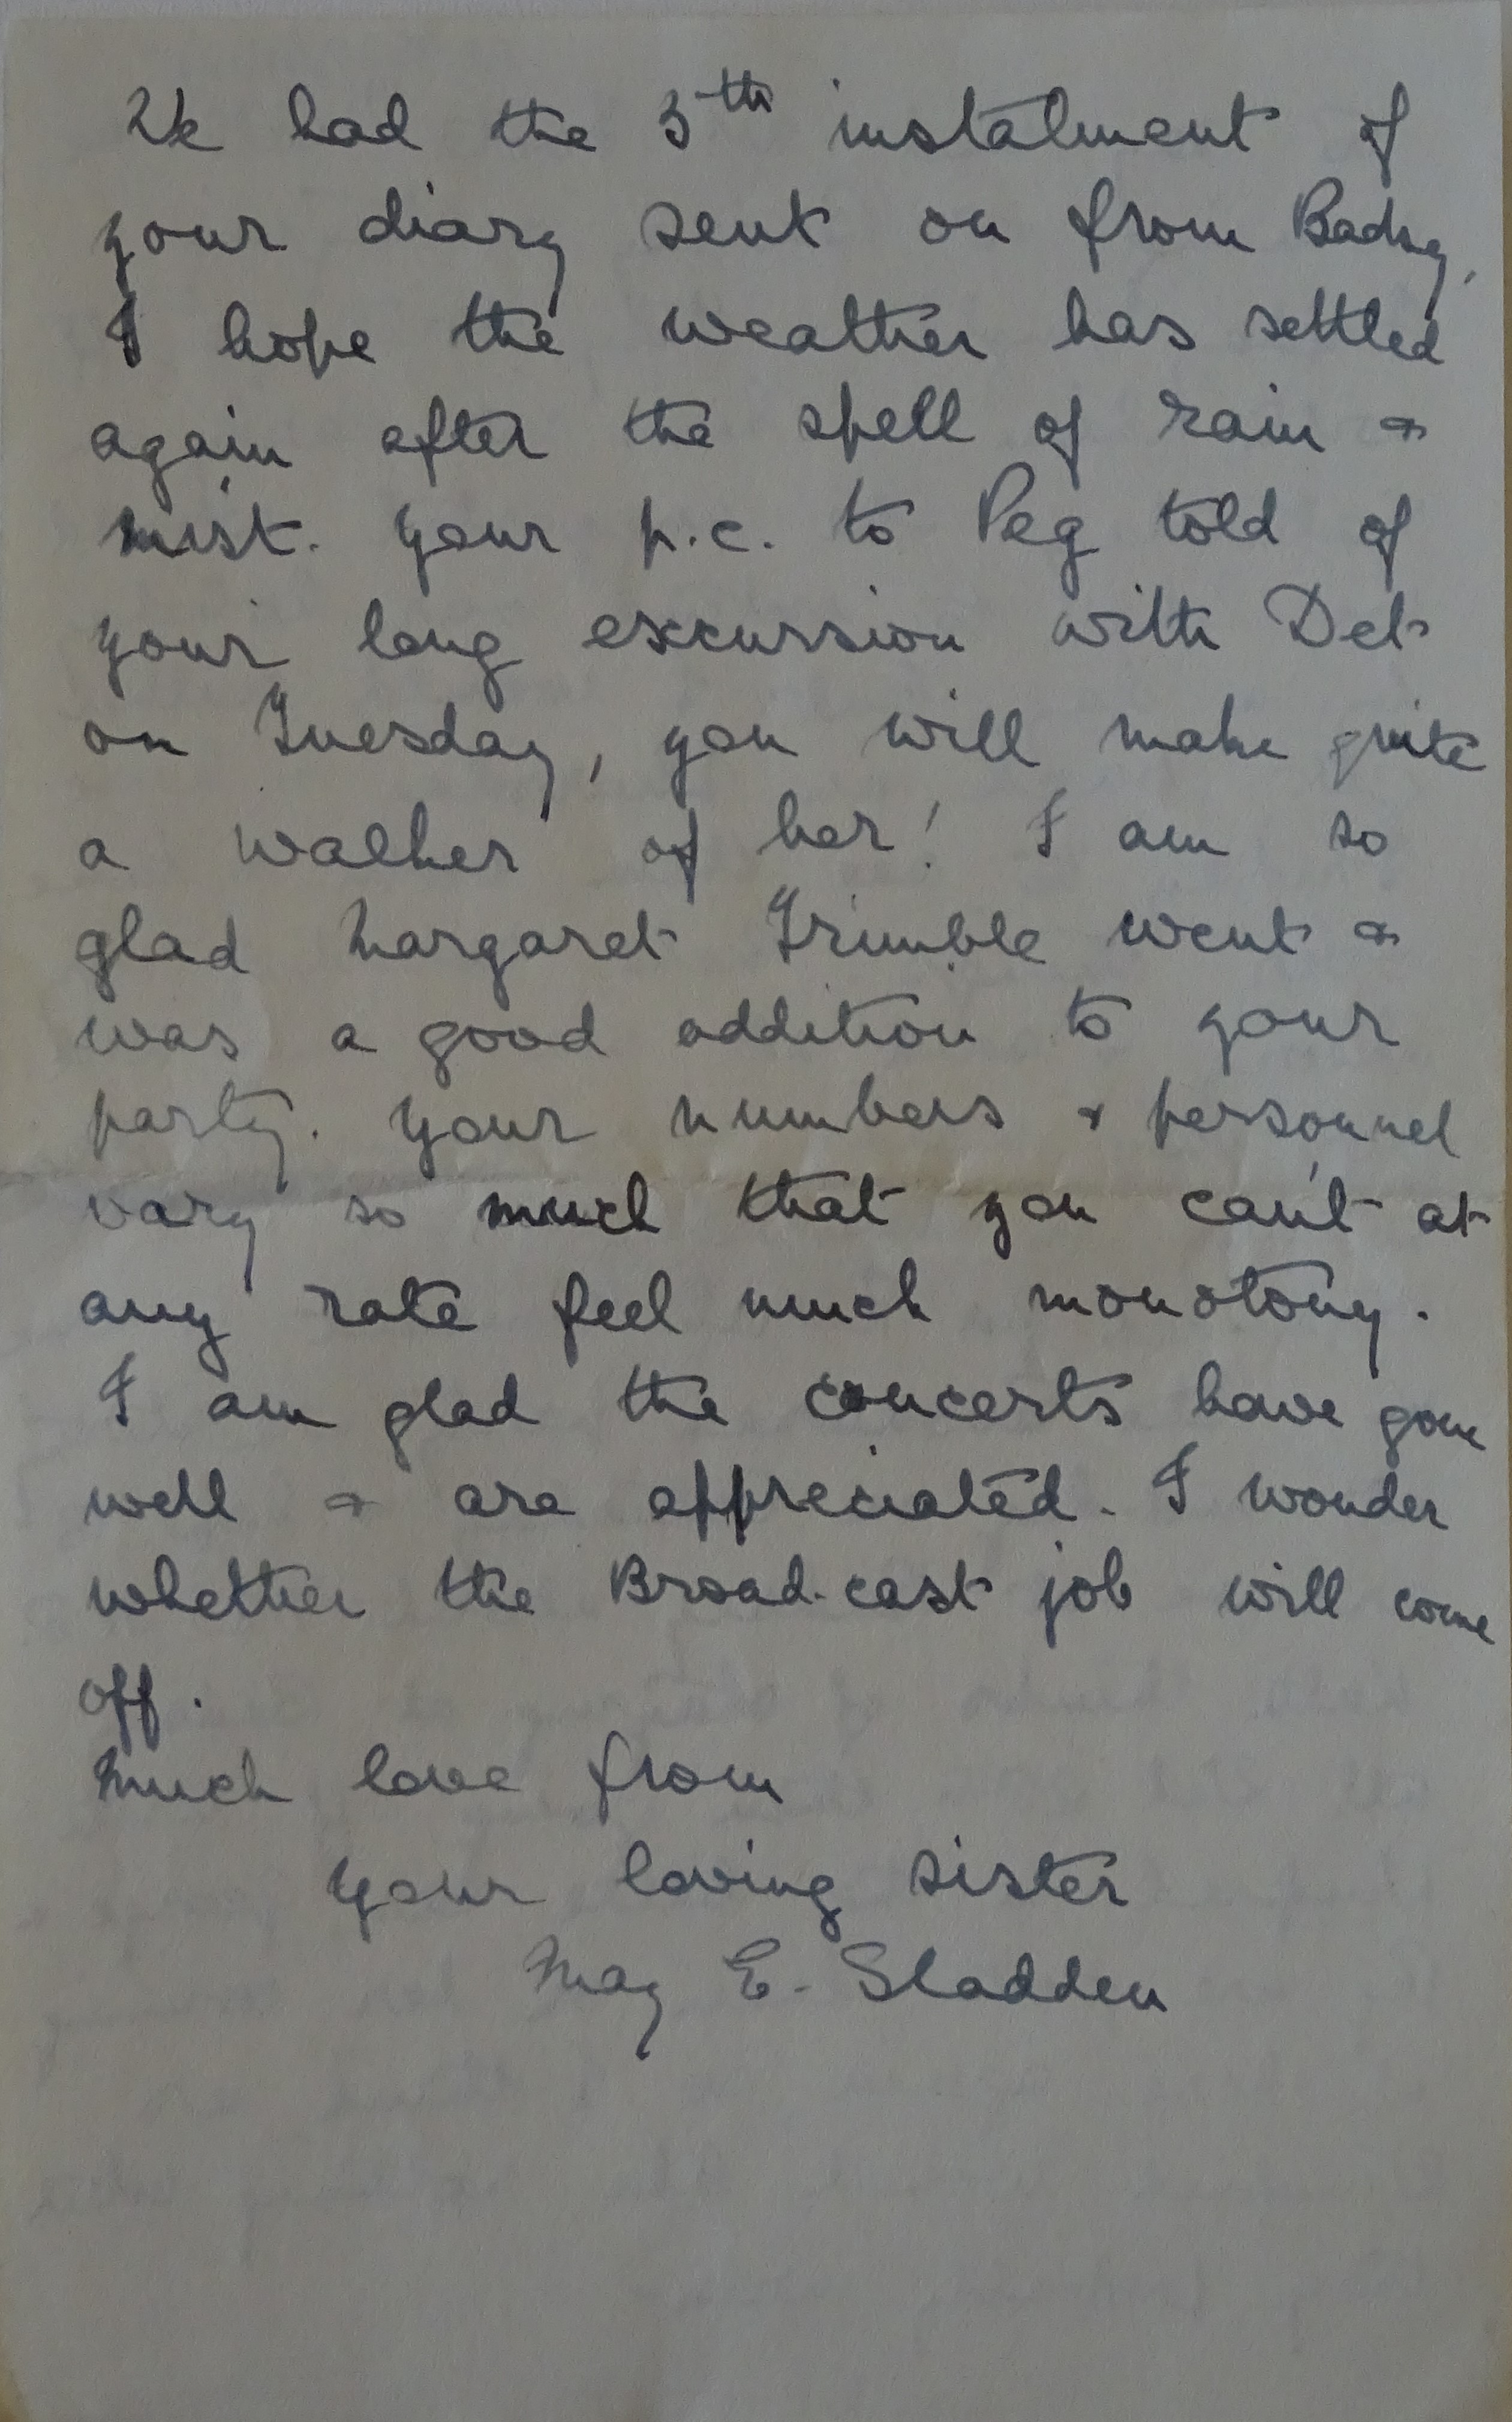 We had the 5th instalment of
your diary sent on from Badsey,
I hope the weather has settled
again after the spell of rain &
mist. Your p.c. to Peg told of
your long excursion with Det
on Tuesday, you will make quite
a walker of her! I am so
glad Margaret Trimble went &
was a good addition to your
party. Your numbers & personnel
vary so much that you can't at
any rate feel much monotony.
I am glad the concerts have gone
well & are appreciated. I wonder
whether the Broad-cast job will come
off.
Much love from
Your loving sister
May E. Sladden